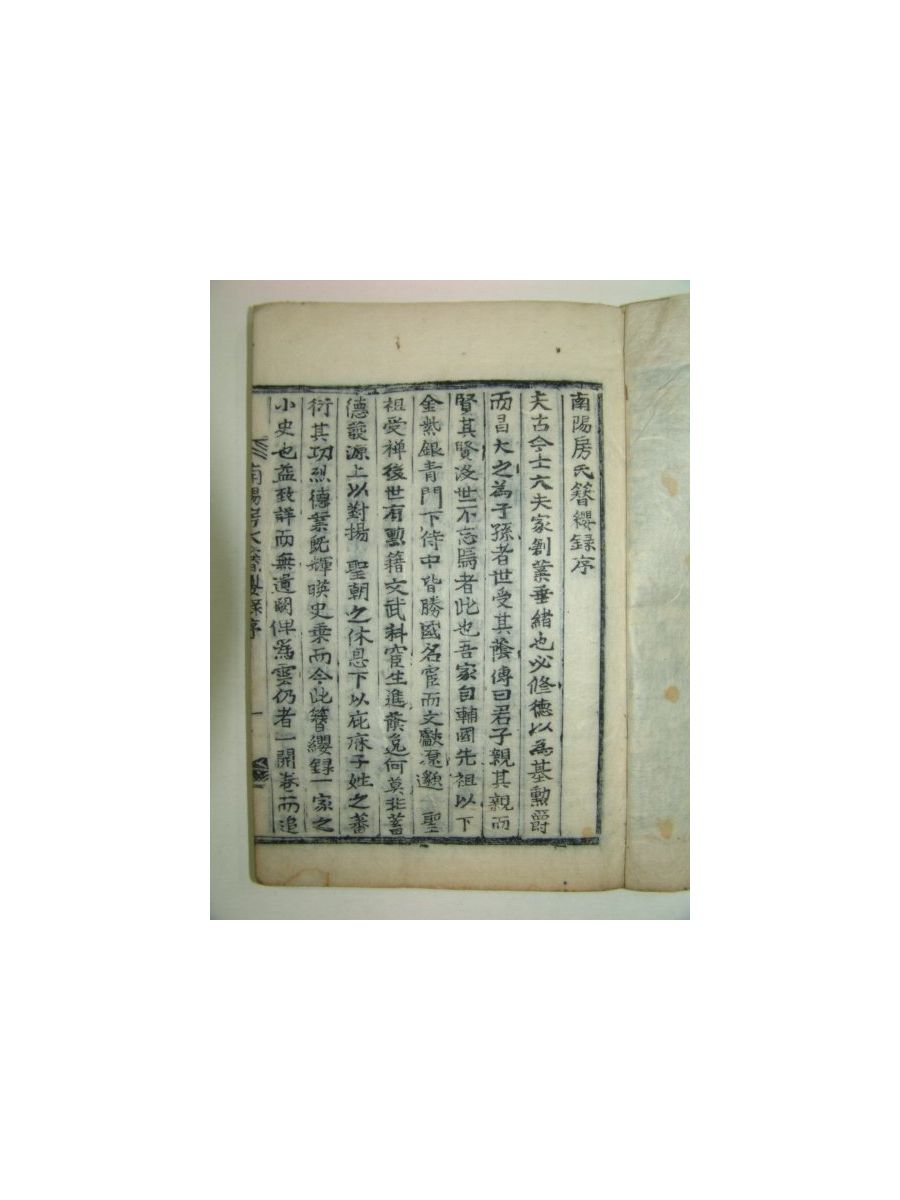 南陽房氏簪纓録序
夫古今士大夫家創業垂緒也必修德以為基勳爵
而昌大之為子孫者世受其蔭傳曰君子親其親而
賢其賢沒世不忘焉者此也吾家自輔國先祖以下
金紫銀青門下侍中皆勝國名宦而文獻邈 聖
祖受禅後世有勳籍文武科宦生進蔭逸何莫非蓄
德發源上以對揚 聖朝之休息下以庇庥子姓之蕃
衍其功烈傳業既輝暎史乘而今此簪纓録一家之
小史也益致詳而無遺闕俾為雲仍者一開卷而追
南陽房氏簪纓録序 一